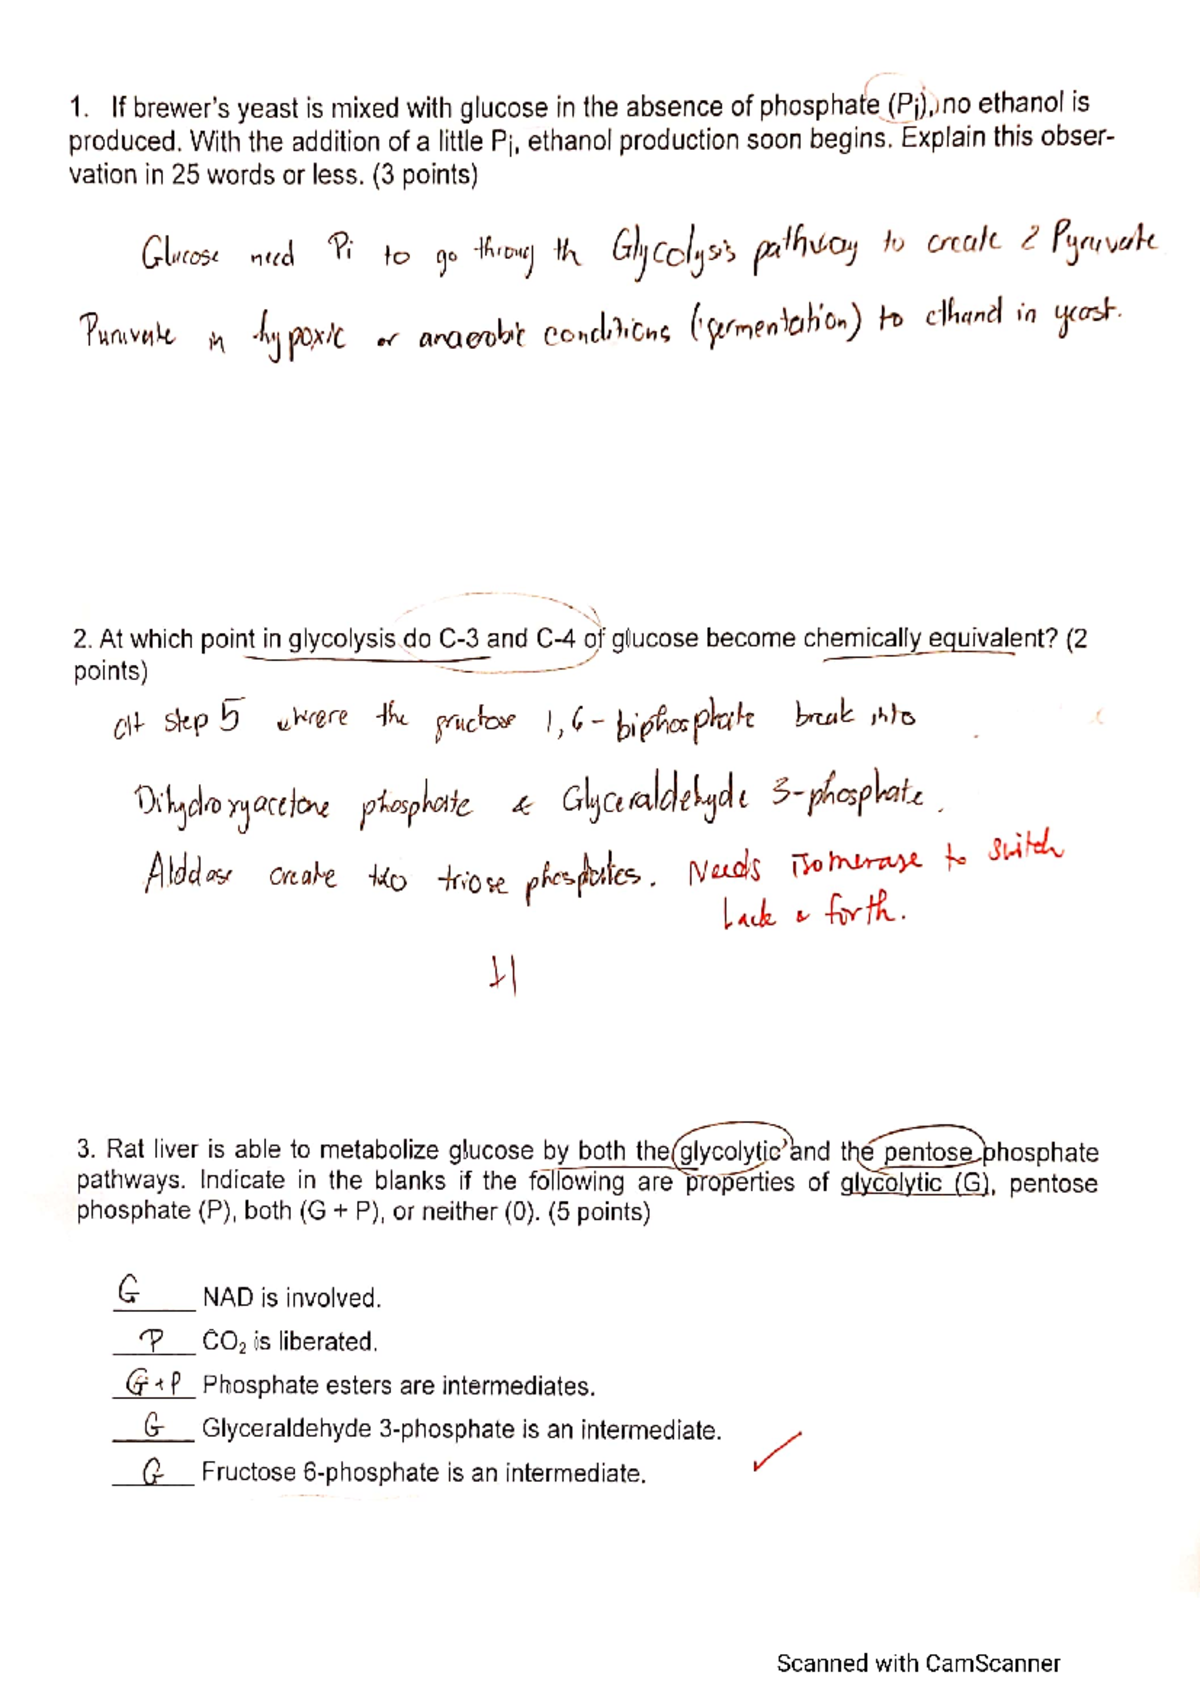 1. If brewer's yeast is mixed with glucose in the absence of phosphate (Pi), no ethanol is
produced. With the addition of a little Pi, ethanol production soon begins. Explain this obser-
vation in 25 words or less. (3 points)
Glucose need Pi to go throug th Glycolysis pathway to create 2 Pyruvate
Puruvate in hypoxic or anaerobic conditions (fermentation) to ethanol in yeast.
2. At which point in glycolysis do C-3 and C-4 of glucose become chemically equivalent? (2
points)
At step 5 where the fructose 1,6-biphosphate break into
Dihydroxyacetone phosphate & Glyceraldehyde 3-phosphate.
Alddase create two triose phosphates. Needs isomerase to switch
back & forth.
3. Rat liver is able to metabolize glucose by both the glycolytic and the pentose phosphate
pathways. Indicate in the blanks if the following are properties of glycolytic (G), pentose
phosphate (P), both (G + P), or neither (0). (5 points)
G NAD is involved.
P CO₂ is liberated.
G+P Phosphate esters are intermediates.
G Glyceraldehyde 3-phosphate is an intermediate.
G Fructose 6-phosphate is an intermediate.
Scanned with CamScanner